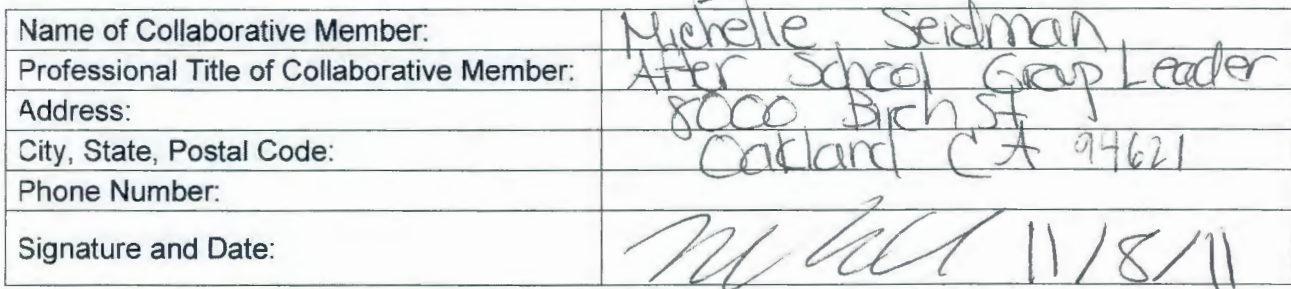 Name of Collaborative Member: Michelle Seidman
Professional Title of Collaborative Member: After School Group Leader
Address: 8000 Birch St
City, State, Postal Code: Oakland CA 94621
Phone Number:
Signature and Date: 11/8/11